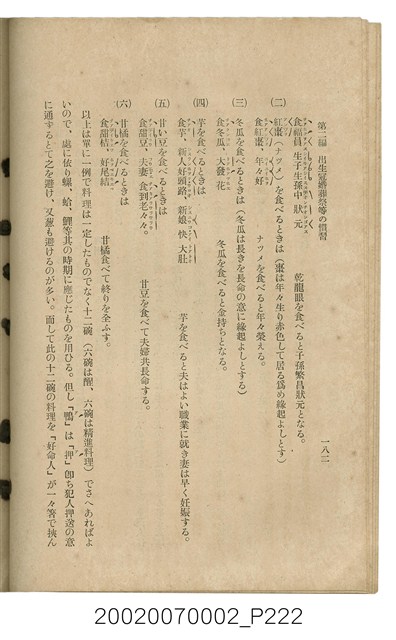 第二編　出生冠婚葬祭等の慣習
一八二
食福員　生子生孫中　狀　元
乾龍眼を食べると子孫繁昌狀元となる。
(二)　紅棗（ナツメ）を食べるときは（棗は年々生り赤色して居る爲め緣起よしとす）
食紅棗、年々好
ナツメを食べると年々榮える。
(三)　冬瓜を食べるときは（冬瓜は長きを長命の意に緣起よしとする）
食冬瓜、大發　花
冬瓜を食べると金持ちとなる。
(四)　芋を食べるときは
食芋、新人好頭路、新娘　快　大肚
芋を食べると夫はよい職業に就き妻は早く妊娠する。
(五)　甘い豆を食べるときは
食甜豆、夫妻　食到老々々。
甘豆を食べて夫婦共長命する。
(六)　甘橘を食べるときは
食甜桔、好尾結
甘橘食べて終りを全ふす。
以上は單に一例で料理は一定したものでなく十二碗（六碗は醒、六碗は精進料理）でさへあればよ
いので、處に依り蟳、蛤、鯉等其の時期に應じたものを用ひる。但し「鴨」は「押」卽ち犯人押送の意
に通ずるとて之を避け、又葱も避けるのが多い。而して此の十二碗の料理を「好命人」が一々箸で挾ん
20020070002_P222